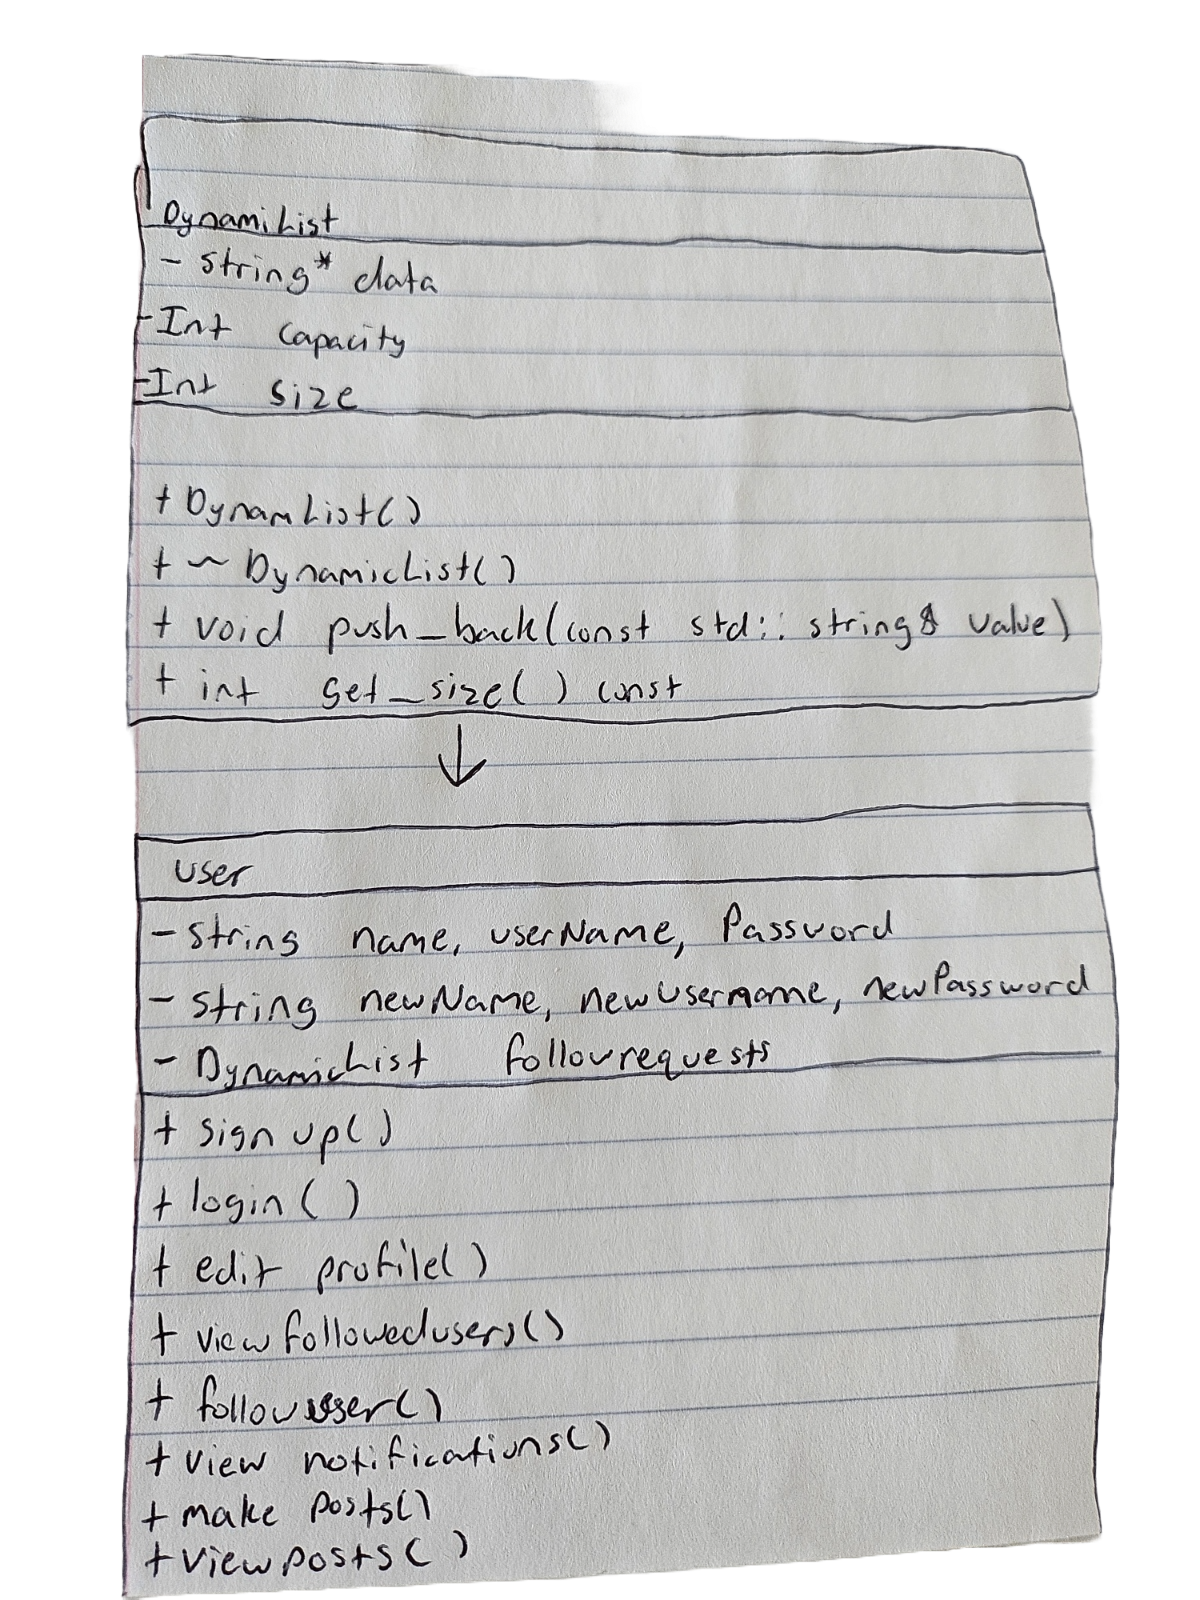 DynamiList
- string* data
- Int capacity
- Int size
+ DynamList()
+ ~ DynamicList()
+ void push_back(const std:: string& value)
+ int get_size() const
user
- string name, userName, Password
- string newName, newUsername, newPassword
- DynamicList followrequests
+ sign up()
+ login()
+ edit profile()
+ viewfollowedusers()
+ followuser()
+ view notifications()
+ make posts()
+ viewposts()